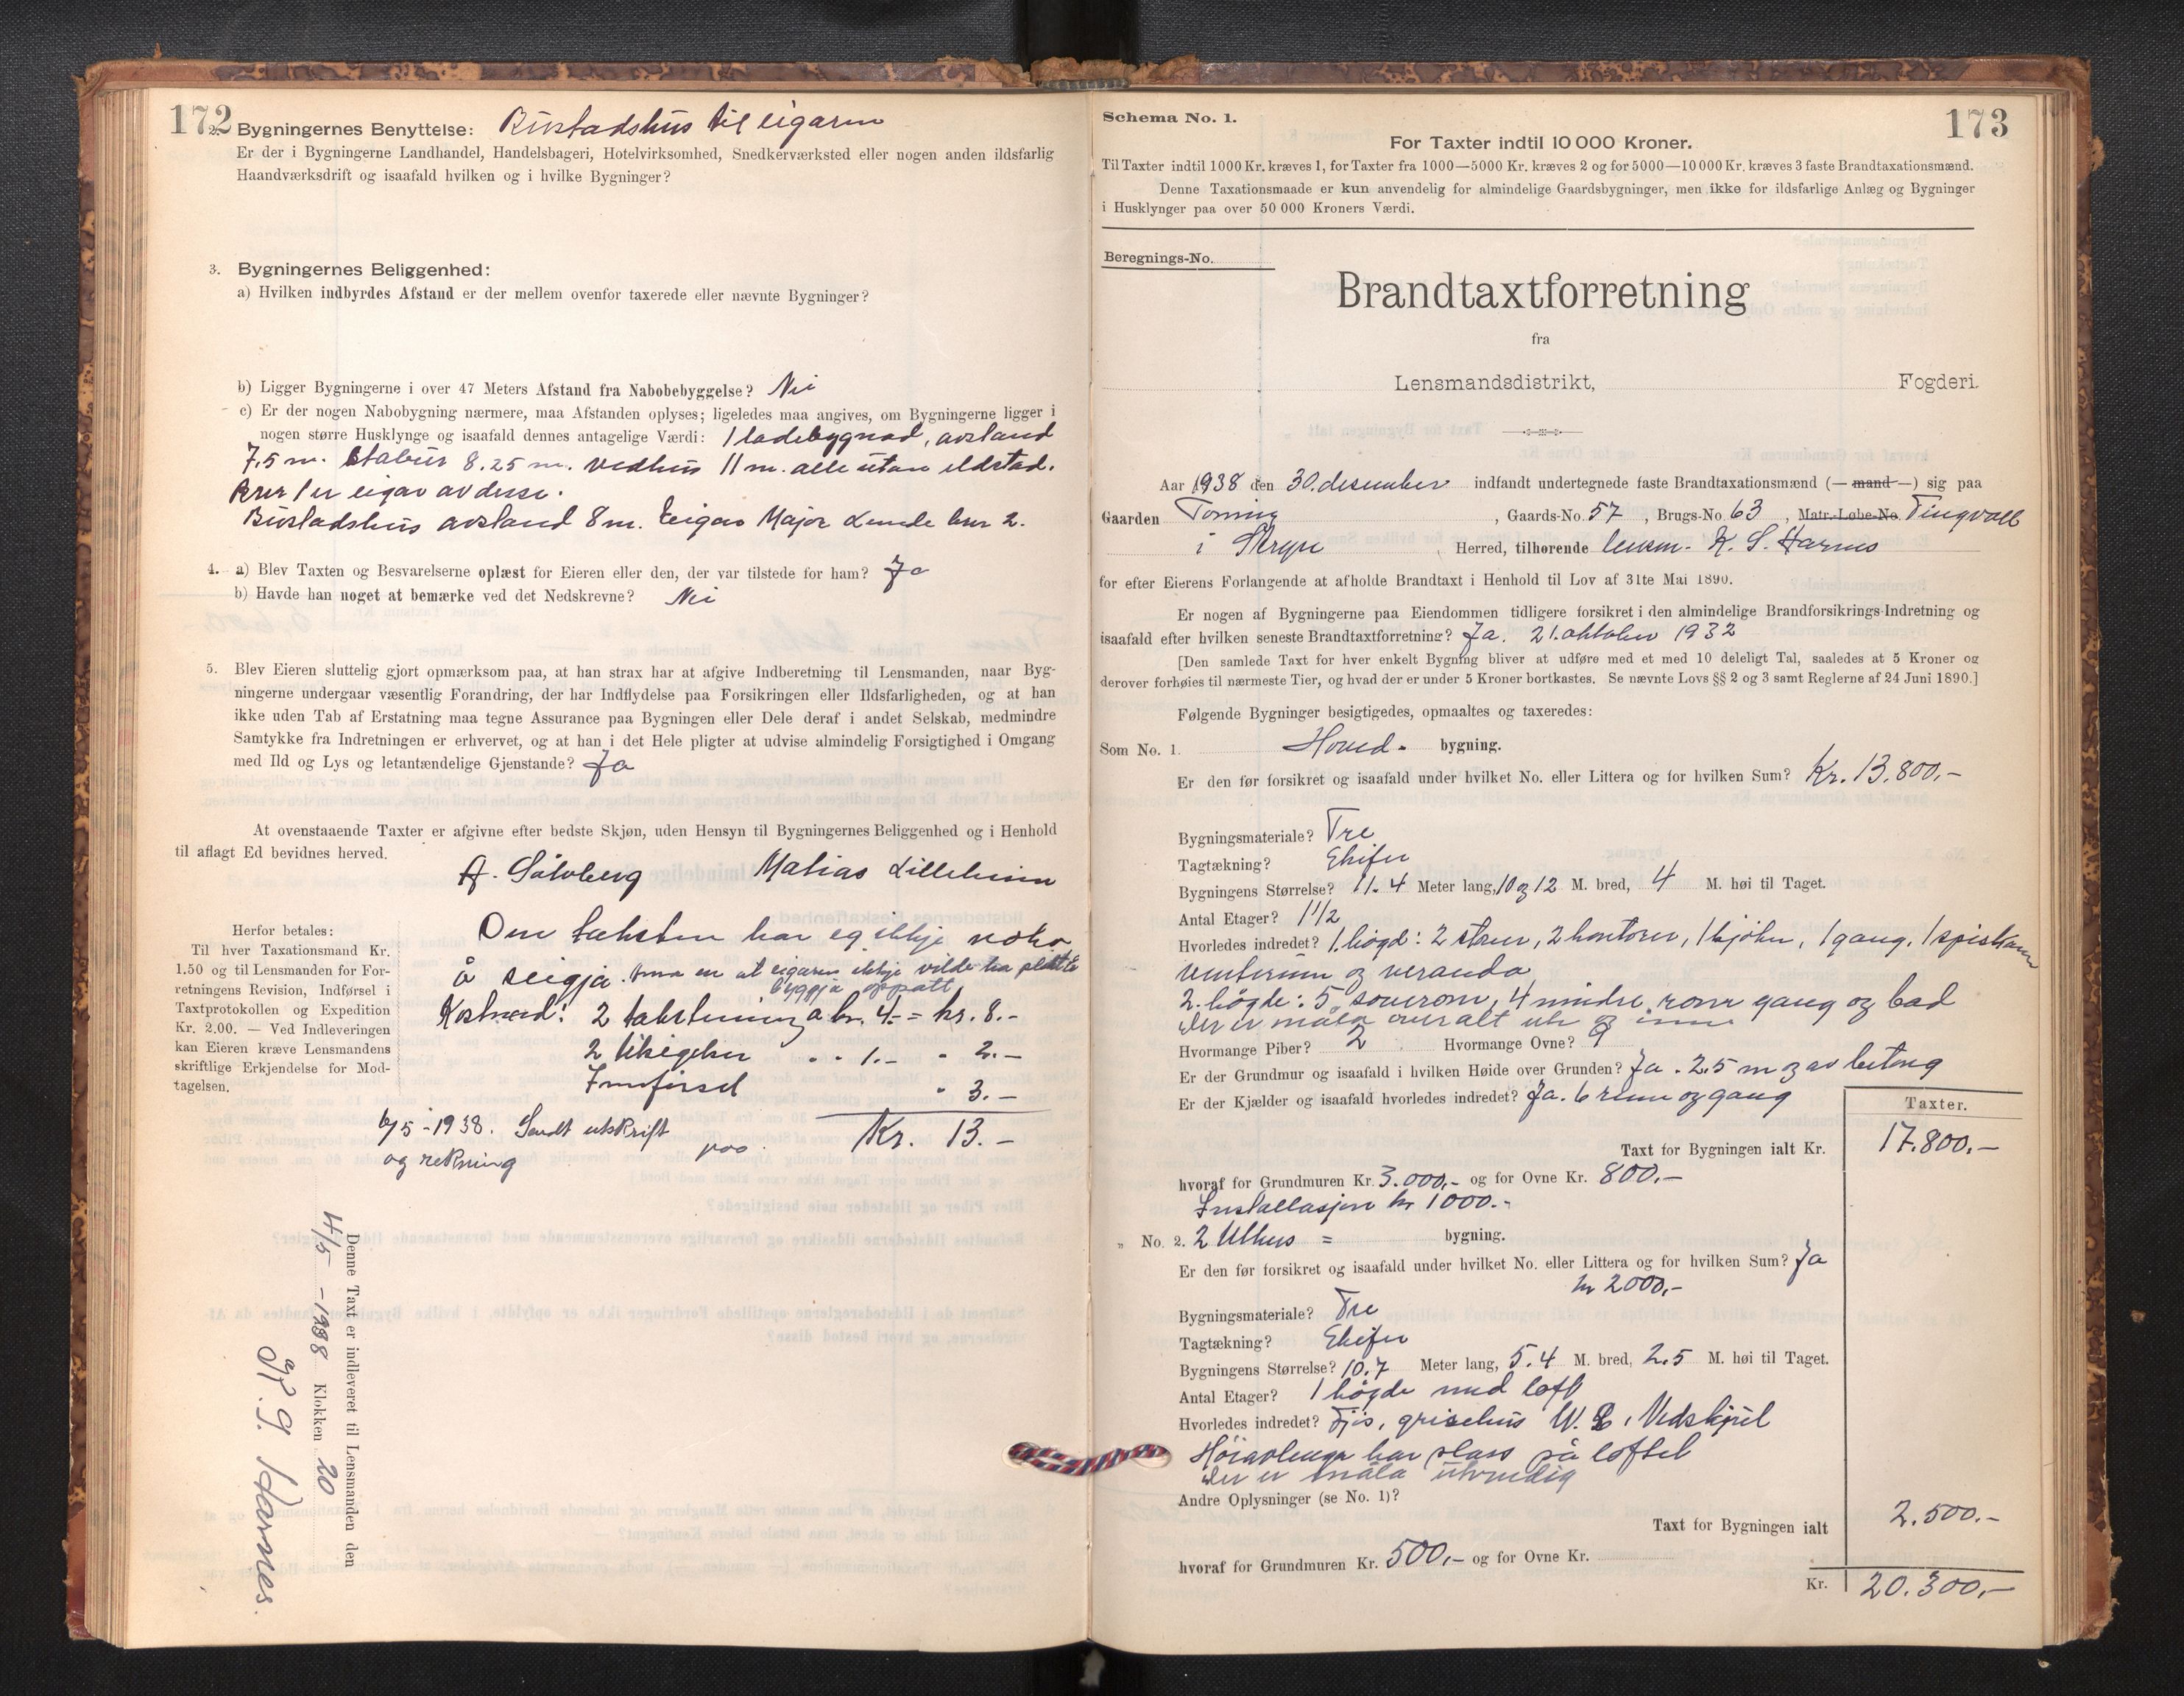 172
2. Bygningernes Benyttelse: Bustadshus til eigaren
Er der i Bygningerne Landhandel, Handelsbageri, Hotelvirksomhed, Snedkerværksted eller nogen anden ildsfarlig
Haandværksdrift og isaafald hvilken og i hvilke Bygninger?
3. Bygningernes Beliggenhed:
a) Hvilken indbyrdes Afstand er der mellem ovenfor taxerede eller nævnte Bygninger?
b) Ligger Bygningerne i over 47 Meters Afstand fra Nabobebyggelse? Nei
c) Er der nogen Nabobygning nærmere, maa Afstanden oplyses; ligeledes maa angives, om Bygningerne ligger i
nogen større Husklynge og isaafald dennes antagelige Værdi: 1 ladebygnad, avstand
7.5 m. Stabur 8.25 m. vedhus 11 m. alle utan eldstad.
er eigar av desse.
Bustadshus avstand 8 m. Eigar Major Lunde 2.
4. a) Blev Taxten og Besvarelserne oplæst for Eieren eller den, der var tilstede for ham? Ja
b) Havde han noget at bemærke ved det Nedskrevne? Nei
5. Blev Eieren sluttelig gjort opmærksom paa, at han strax har at afgive Indberetning til Lensmanden, naar Byg-
ningerne undergaar væsentlig Forandring, der har Indflydelse paa Forsikringen eller Ildsfarligheden, og at han
ikke uden Tab af Erstatning maa tegne Assurance paa Bygningen eller Dele deraf i andet Selskab, medmindre
Samtykke fra Indretningen er erhvervet, og at han i det Hele pligter at udvise almindelig Forsigtighed i Omgang
med Ild og Lys og letantændelige Gjenstande? Ja
At ovenstaaende Taxter er afgivne efter bedste Skjøn, uden Hensyn til Bygningernes Beliggenhed og i Henhold
til aflagt Ed bevidnes herved.
A. Sölvberg Matias Lilleheim
Herfor betales:
Til hver Taxationsmand Kr.
1.50 og til Lensmanden for For-
retningens Revision, Indførsel i
Taxtprotokollen og Expedition
Kr. 2.00. — Ved Indleveringen
kan Eieren kræve Lensmandens
skriftlige Erkjendelse for Mod-
tagelsen.
Om taksten har eg ikkje noko
å seigja. enn at eigaren ikkje vilde ha
byggja oppatt
Kostnad: 2 a kr. 4.- = kr. 8.-
2 1.- " 2.-
Innförsel " 3.-
Kr. 13.-
6/5-1938. Sendt utskrift
og rekning
Denne Taxt er indleveret til Lensmanden den
4/5 - 1938 Klokken 20
Harnes.
173
Schema No. 1.
For Taxter indtil 10 000 Kroner.
Til Taxter indtil 1000 Kr. kræves 1, for Taxter fra 1000—5000 Kr. kræves 2 og for 5000—10 000 Kr. kræves 3 faste Brandtaxationsmænd.
Denne Taxationsmaade er kun anvendelig for almindelige Gaardsbygninger, men ikke for ildsfarlige Anlæg og Bygninger
i Husklynger paa over 50 000 Kroners Værdi.
Beregnings-No.
Brandtaxtforretning
fra
Lensmandsdistrikt, Fogderi.
Aar 1938 den 30. desember indfandt undertegnede faste Brandtaxationsmænd (— mand —) sig paa
Gaarden Toning, Gaards-No. 57, Brugs-No. 63, Matr.-Løbe-No. Tingvoll
i Stryn Herred, tilhørende lensm. K. S. Harnes
for efter Eierens Forlangende at afholde Brandtaxt i Henhold til Lov af 31te Mai 1890.
Er nogen af Bygningerne paa Eiendommen tidligere forsikret i den almindelige Brandforsikrings-Indretning og
isaafald efter hvilken seneste Brandtaxtforretning? Ja. 21. oktober 1932
[Den samlede Taxt for hver enkelt Bygning bliver at udføre med et med 10 deleligt Tal, saaledes at 5 Kroner og
derover forhøies til nærmeste Tier, og hvad der er under 5 Kroner bortkastes. Se nævnte Lovs §§ 2 og 3 samt Reglerne af 24 Juni 1890.]
Følgende Bygninger besigtigedes, opmaaltes og taxeredes:
Som No. 1. Hoved- bygning.
Er den før forsikret og isaafald under hvilket No. eller Littera og for hvilken Sum? Kr. 13.800,-
Bygningsmateriale? Tre
Tagtækning? Skifer
Bygningens Størrelse? 11.4 Meter lang, 10 og 12 M. bred, 4 M. høi til Taget.
Antal Etager? 1 1/2
Hvorledes indredet? 1. högd: 2 stuer, 2 kontorer, 1 kjöken, 1 gang, 1 spiskam
venterum og veranda
2. högde: 5 soverom, 4 mindre rom gang og bad
Der er måla overalt ute og inne
Hvormange Piber? 2 Hvormange Ovne? 9
Er der Grundmur og isaafald i hvilken Høide over Grunden? Ja. 2.5 m og av betong
Er der Kjælder og isaafald hvorledes indredet? Ja. 6 rum og gang
Taxter.
Taxt for Bygningen ialt Kr. 17.800.-
hvoraf for Grundmuren Kr. 3.000,- og for Ovne Kr. 800.-
Installasjon kr 1000.-
" No. 2. 2 Uthus = bygning.
Er den før forsikret og isaafald under hvilket No. eller Littera og for hvilken Sum? Ja
kr 2000,-
Bygningsmateriale? Tre
Tagtækning? Skifer
Bygningens Størrelse? 10.7 Meter lang, 5.4 M. bred, 2.5 M. høi til Taget.
Antal Etager? 1 högde med loft
Hvorledes indredet? Fjös, grisehus W. C, Vedskjul
Höiavlinga har plass på loftet
Der er måla utvendig
Andre Oplysninger (se No. 1)?
Taxt for Bygningen ialt 2.500.-
hvoraf for Grundmuren Kr. 500,- og for Ovne Kr.
Kr. 20.300,-